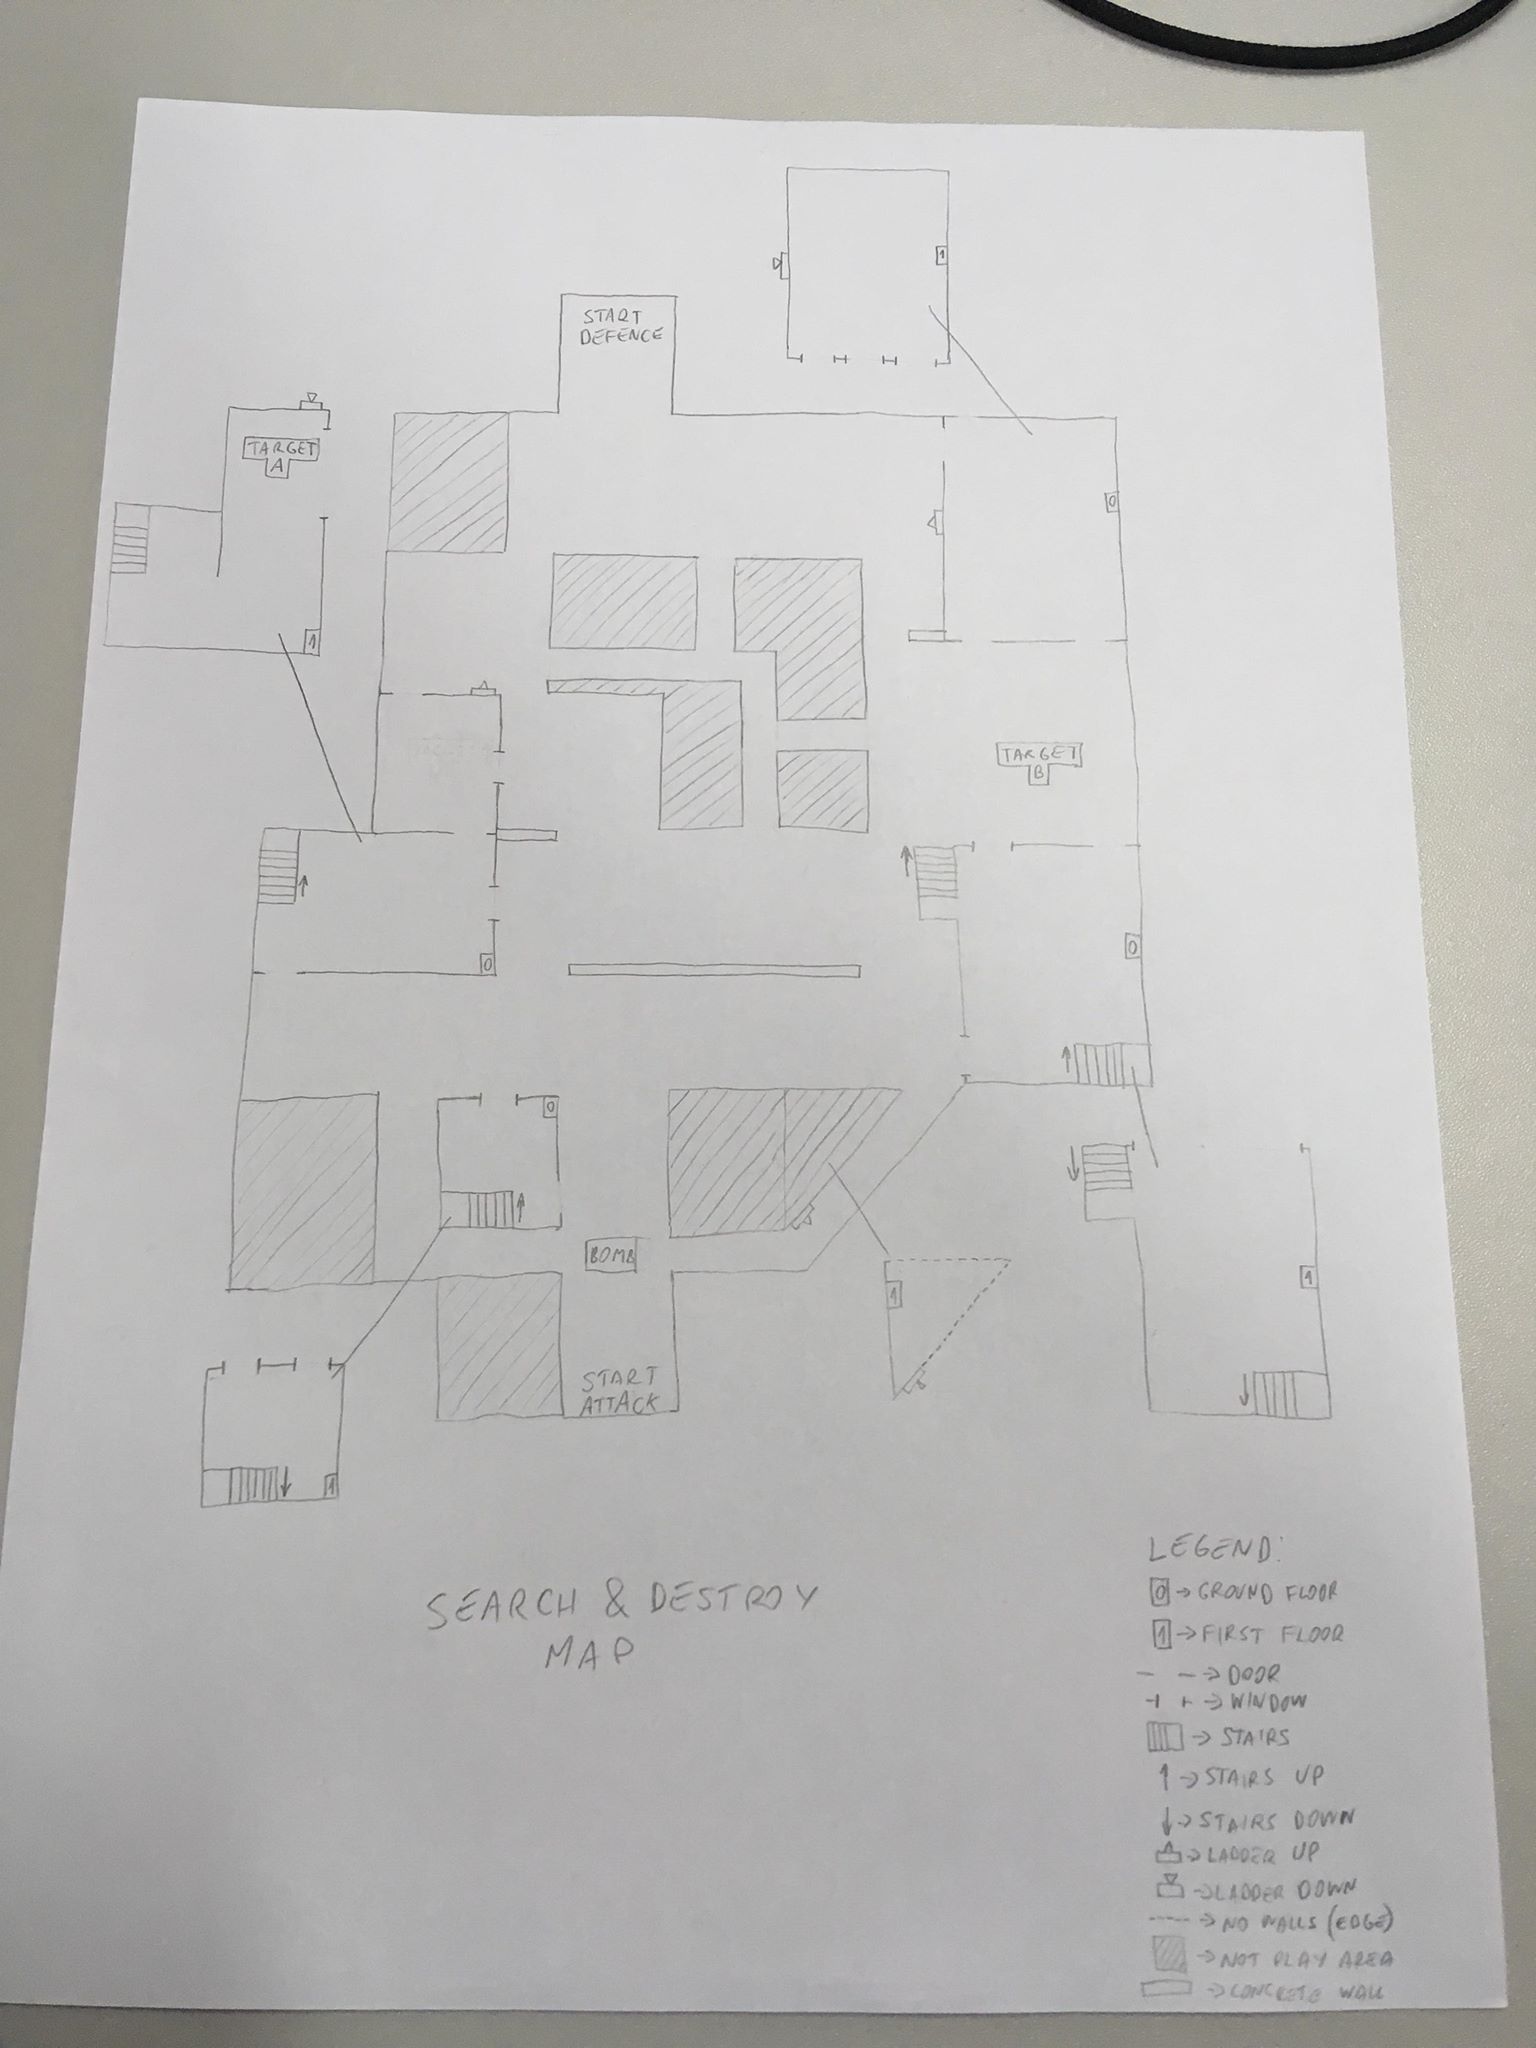 1
START
DEFENCE
TARGET
A
0
1
TARGET
B
0
0
0
BOMB
1
1
START
ATTACK
1
SEARCH & DESTROY
MAP
LEGEND:
0 → GROUND FLOOR
1 → FIRST FLOOR
→ DOOR
→ WINDOW
→ STAIRS
↑ → STAIRS UP
↓ → STAIRS DOWN
→ LADDER UP
→ LADDER DOWN
---- → NO WALLS (EDGE)
→ NOT PLAY AREA
→ CONCRETE WALL